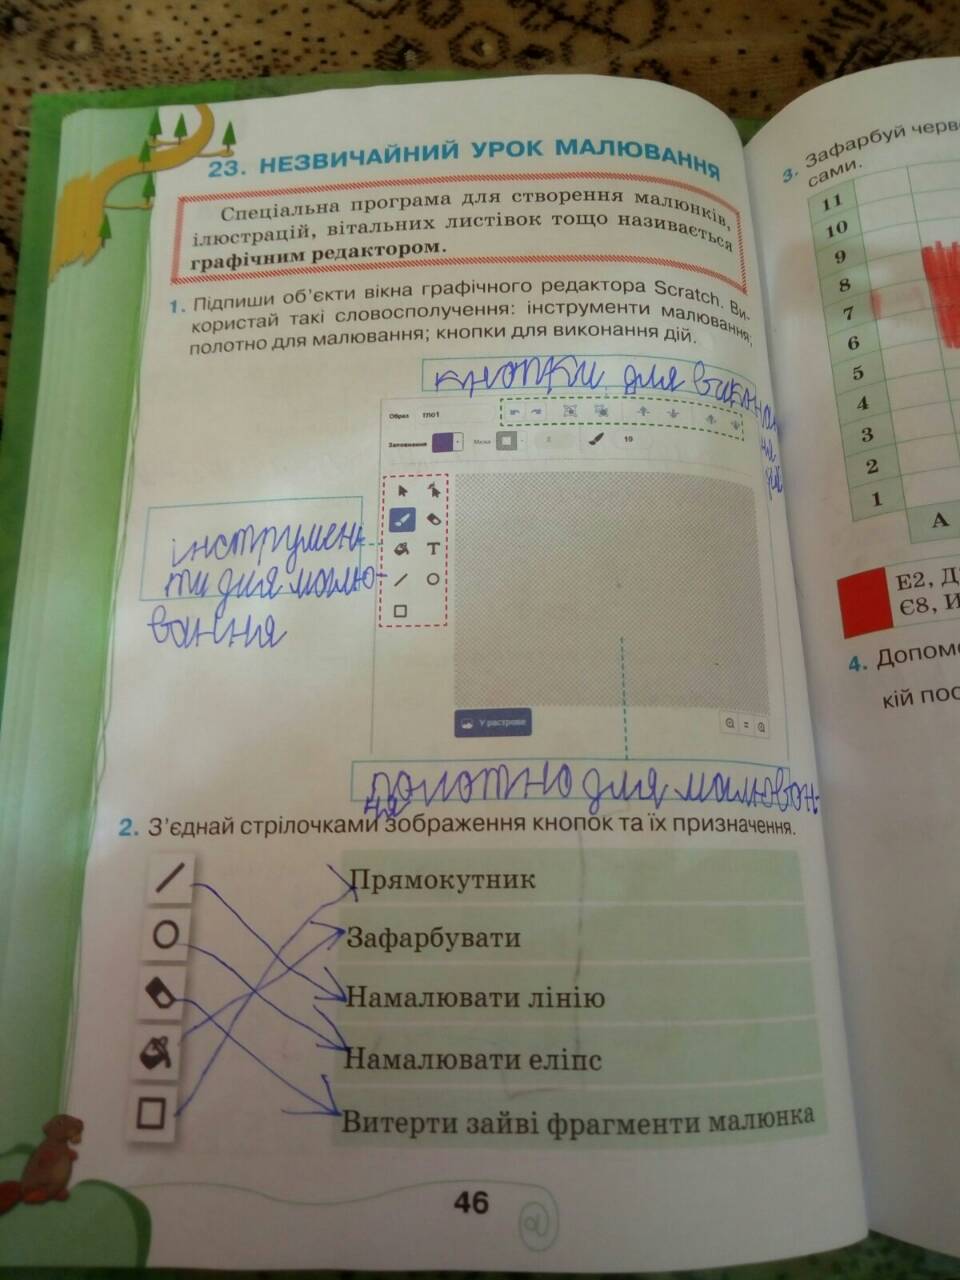 23. НЕЗВИЧАЙНИЙ УРОК МАЛЮВАННЯ
Спеціальна програма для створення малюнків,
ілюстрацій, вітальних листівок тощо називається
графічним редактором.
1. Підпиши об'єкти вікна графічного редактора Scratch. Ви-
користай такі словосполучення: інструменти малювання;
полотно для малювання; кнопки для виконання дій.
кнопки для виконан
ня
дій
Образ тло1
Заповнення
Межа
10
інструмен-
ти для малю-
вання
T
У растрове
полотно для малюван-
ня
2. З'єднай стрілочками зображення кнопок та їх призначення.
Прямокутник
Зафарбувати
Намалювати лінію
Намалювати еліпс
Витерти зайві фрагменти малюнка
46
3. Зафарбуй черво
сами.
11
10
9
8
7
6
5
4
3
2
1
А
Е2, Д
Є8, И
4. Допомо
кій пос